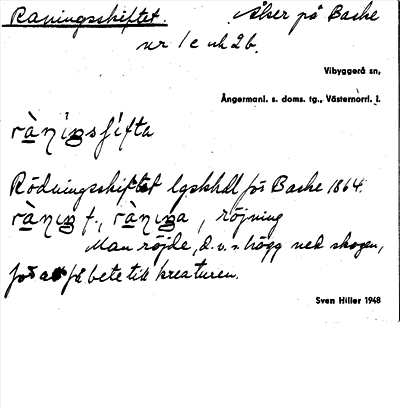 Raningsskiftet. Åker på Baske
nr 1c uh 2b.
Vibyggerå sn,
Ångermanl. s. doms. tg., Västernorrl. l.
rànìngsʃìfta
Rödningsskiftet lgskhdl för Baske 1864.
ràning f., ràninga, röjning
Man röjde, d.v.s. högg ned skogen,
för att få bete till kreaturen.
Sven Hiller 1948